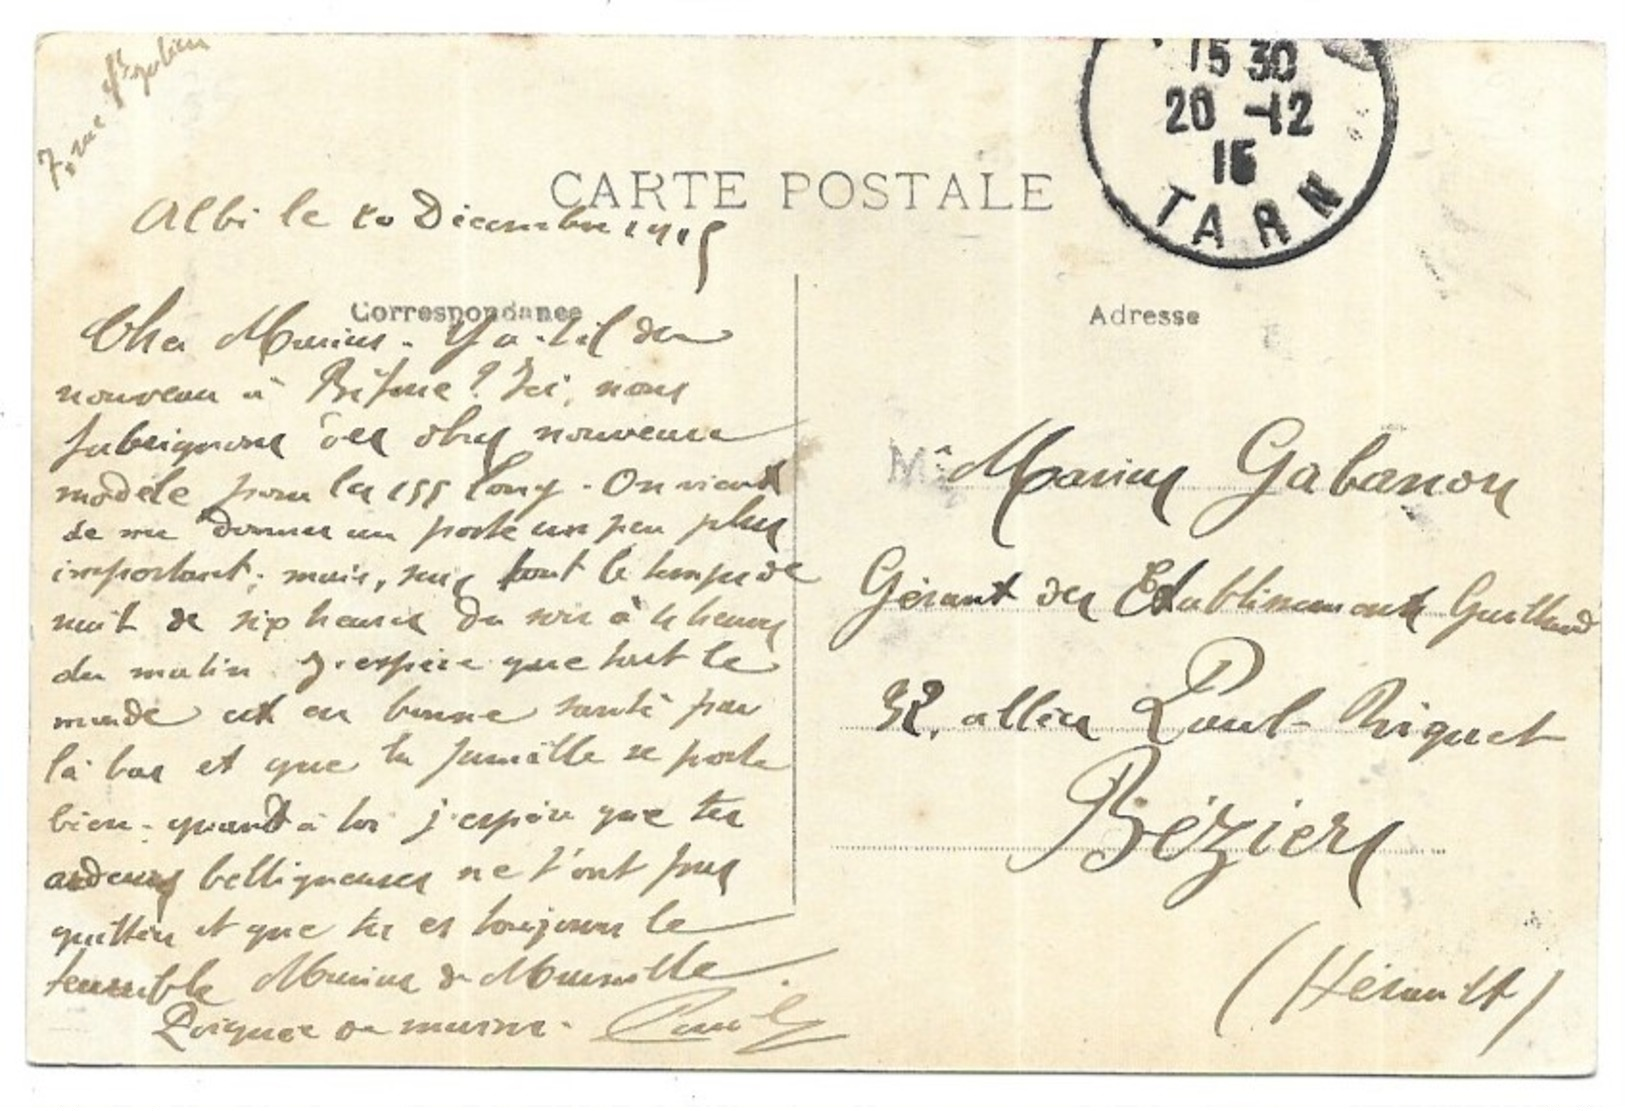 7, rue
Albi le 20 Décembre 1915
CARTE POSTALE
15 30
20 -12
15
TARN
Correspondance
Adresse
Cher Marius. Y a-t-il du
nouveau à ? Ici, nous
fabriquons des obus nouveau
modèle pour les 155 long. On vient
de me donner un poste un peu plus
important; mais, suis tout le temps de
nuit de six heures du soir à 4 heures
du matin. J'espère que tout le
monde est en bonne santé par
là bas et que ta famille se porte
bien. quant à toi j'espère que tes
ardeurs belliqueuses ne t'ont pas
quitté et que tu es toujours le
terrible Marius de Marseille.
Poignée de mains. Paul
Mr Marius Gabanon
Gérant des Etablissements
32, allées Paul Riquet
Béziers
(Hérault)